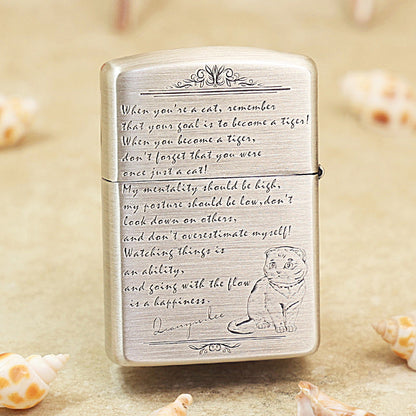 When you're a cat, remember
that your goal is to become a tiger!
When you become a tiger,
don't forget that you were
once just a cat!
My mentality should be high,
my posture should be low, don't
look down on others,
and don't overestimate myself!
Watching things is
an ability,
and going with the flow
is a happiness.